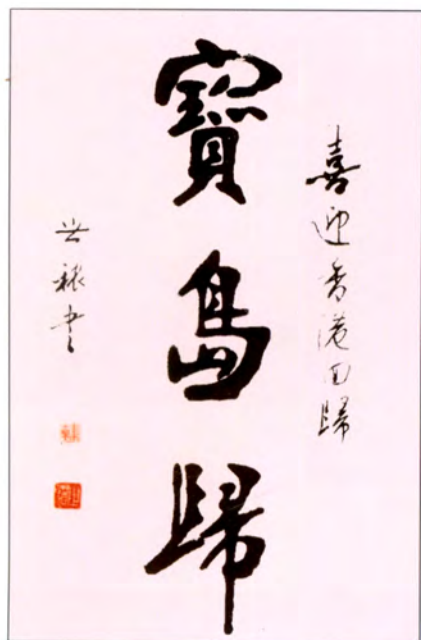 喜迎香港回歸
寶島歸